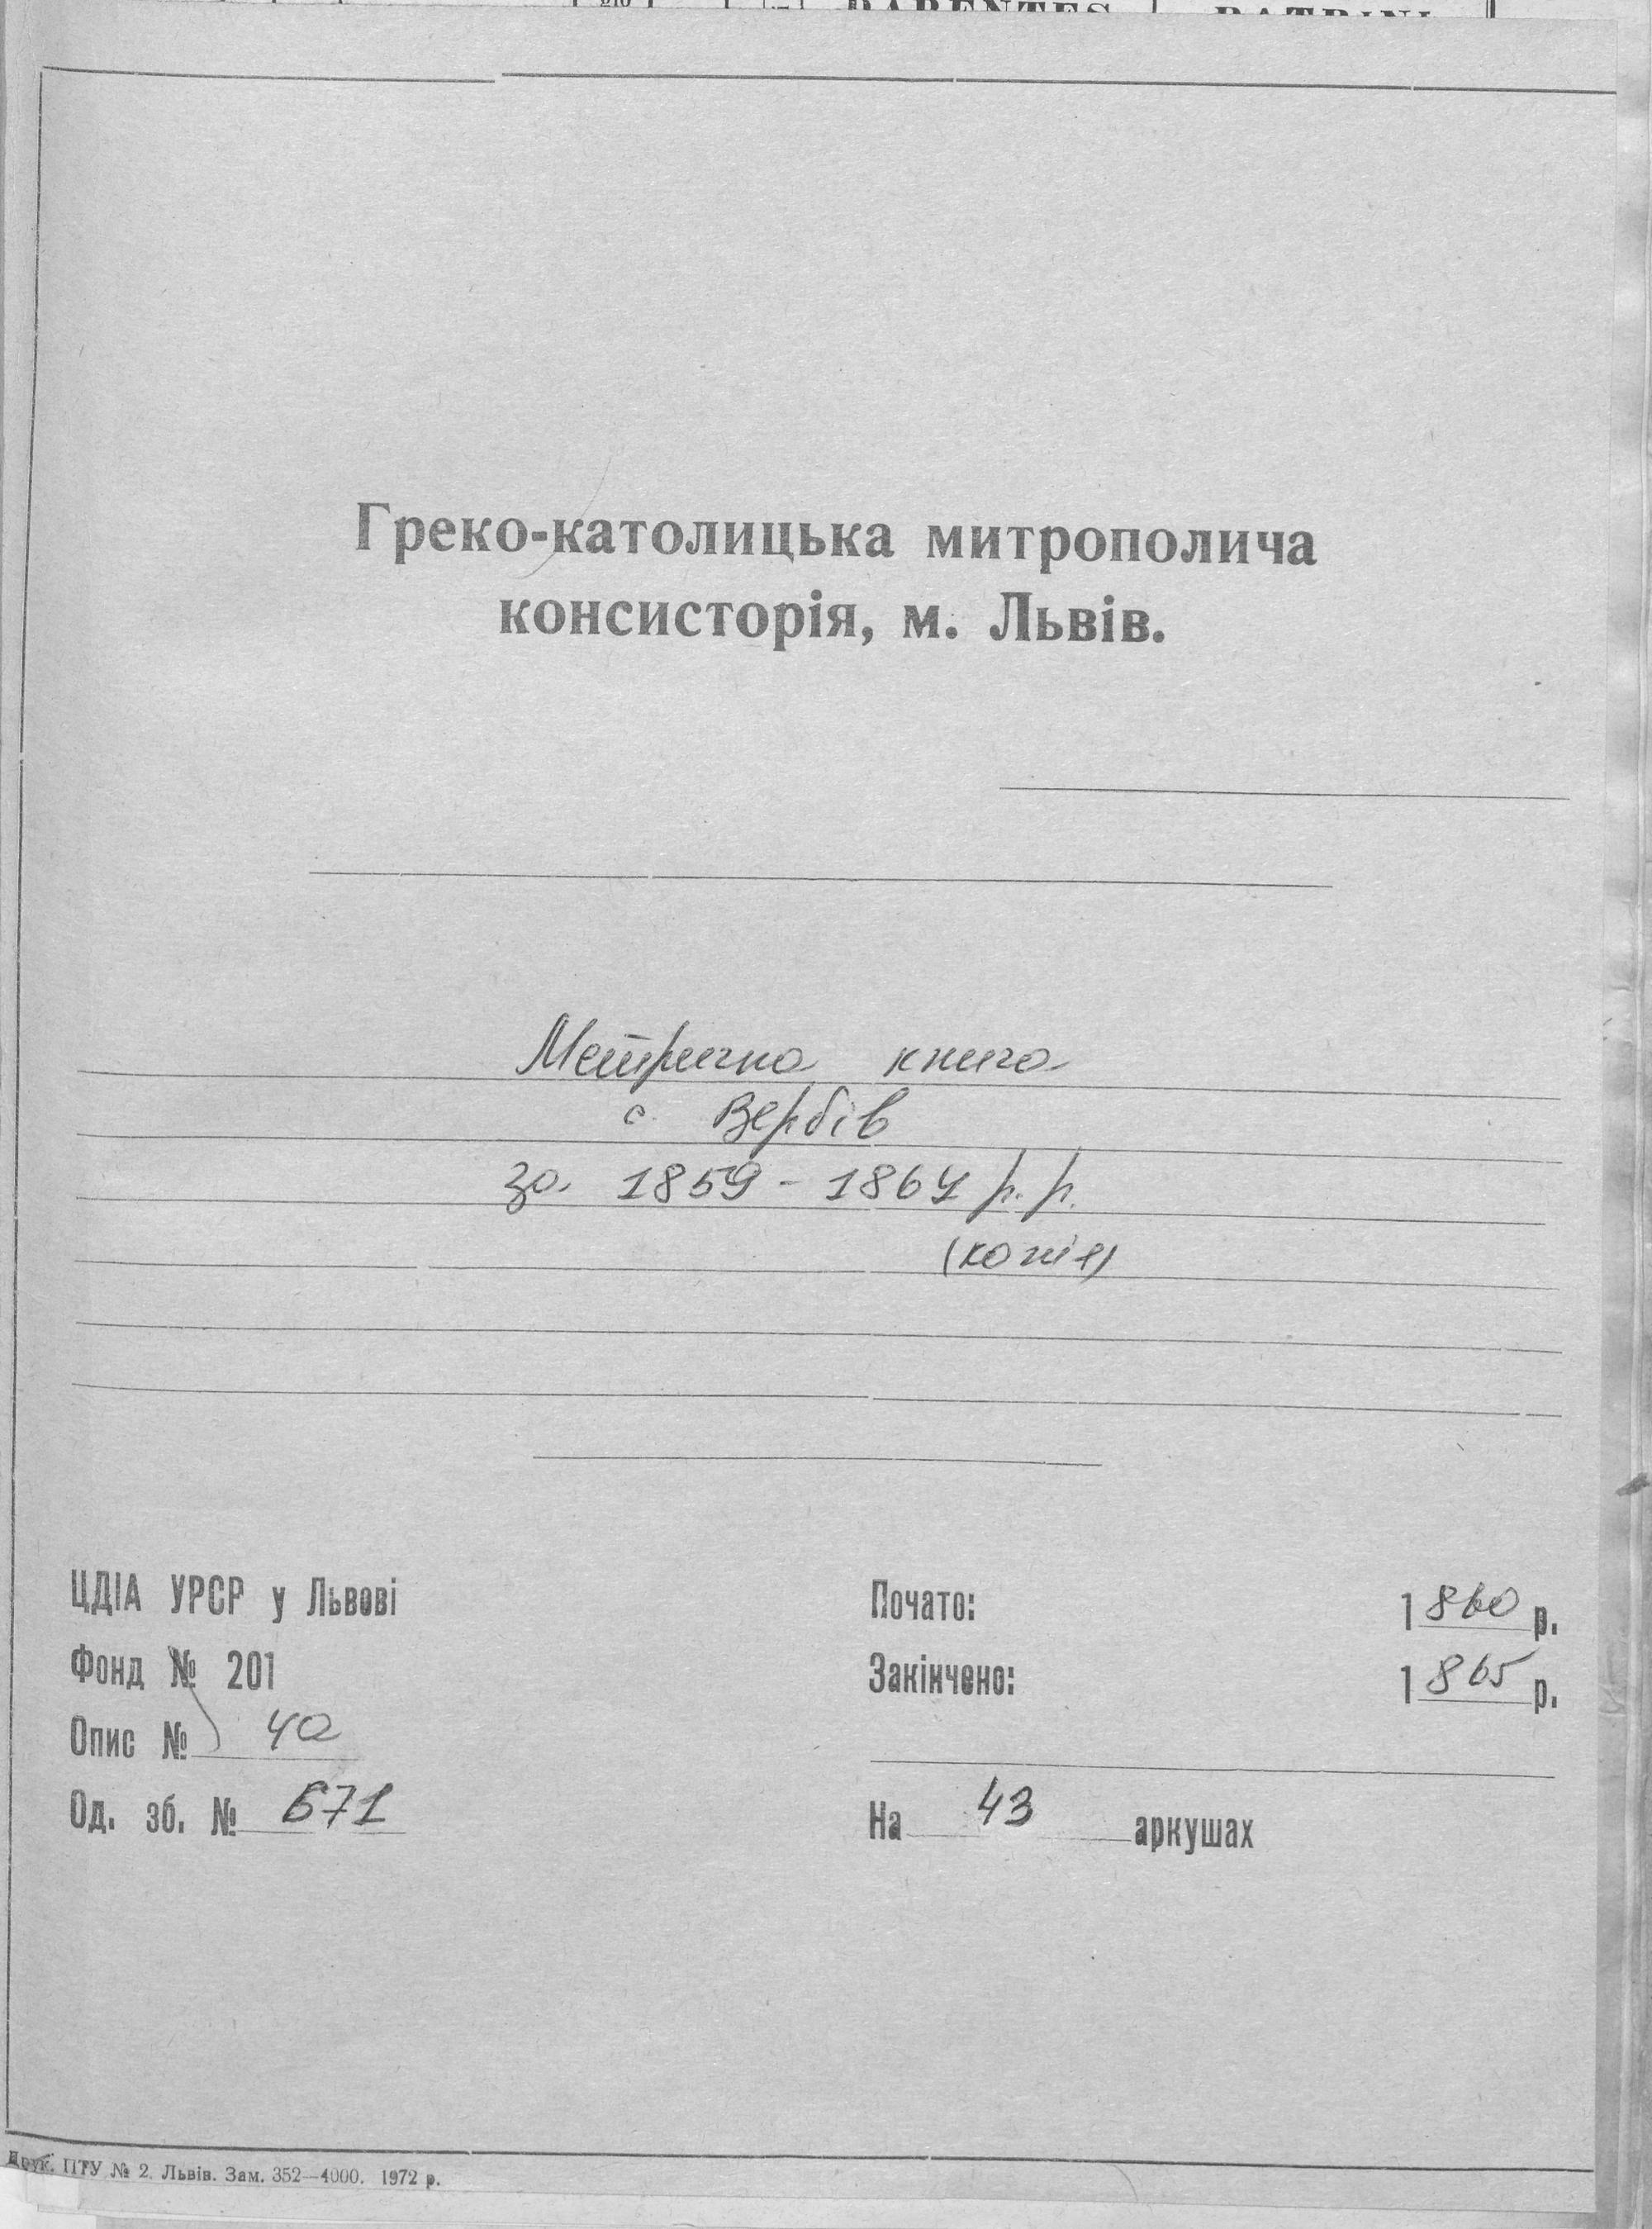 PARENTES PATRINI
Греко-католицька митрополича
консисторія, м. Львів.
Метрична книга
с. Вербів
за 1859 - 1864 р.р.
(копія)
ЦДІА УРСР у Львові
Фонд № 201
Опис № 4а
Од. зб. № 671
Почато: 1860 р.
Закінчено: 1865 р.
На 43 аркушах
Друк. ПТУ № 2. Львів. Зам. 352—4000. 1972 р.